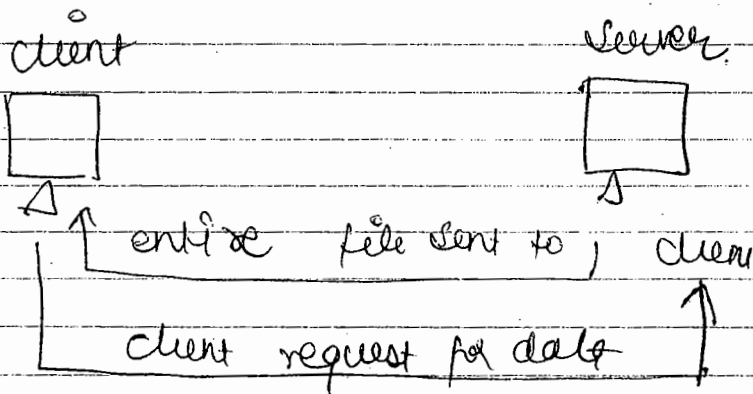 client
server
entire file sent to client
client request for data